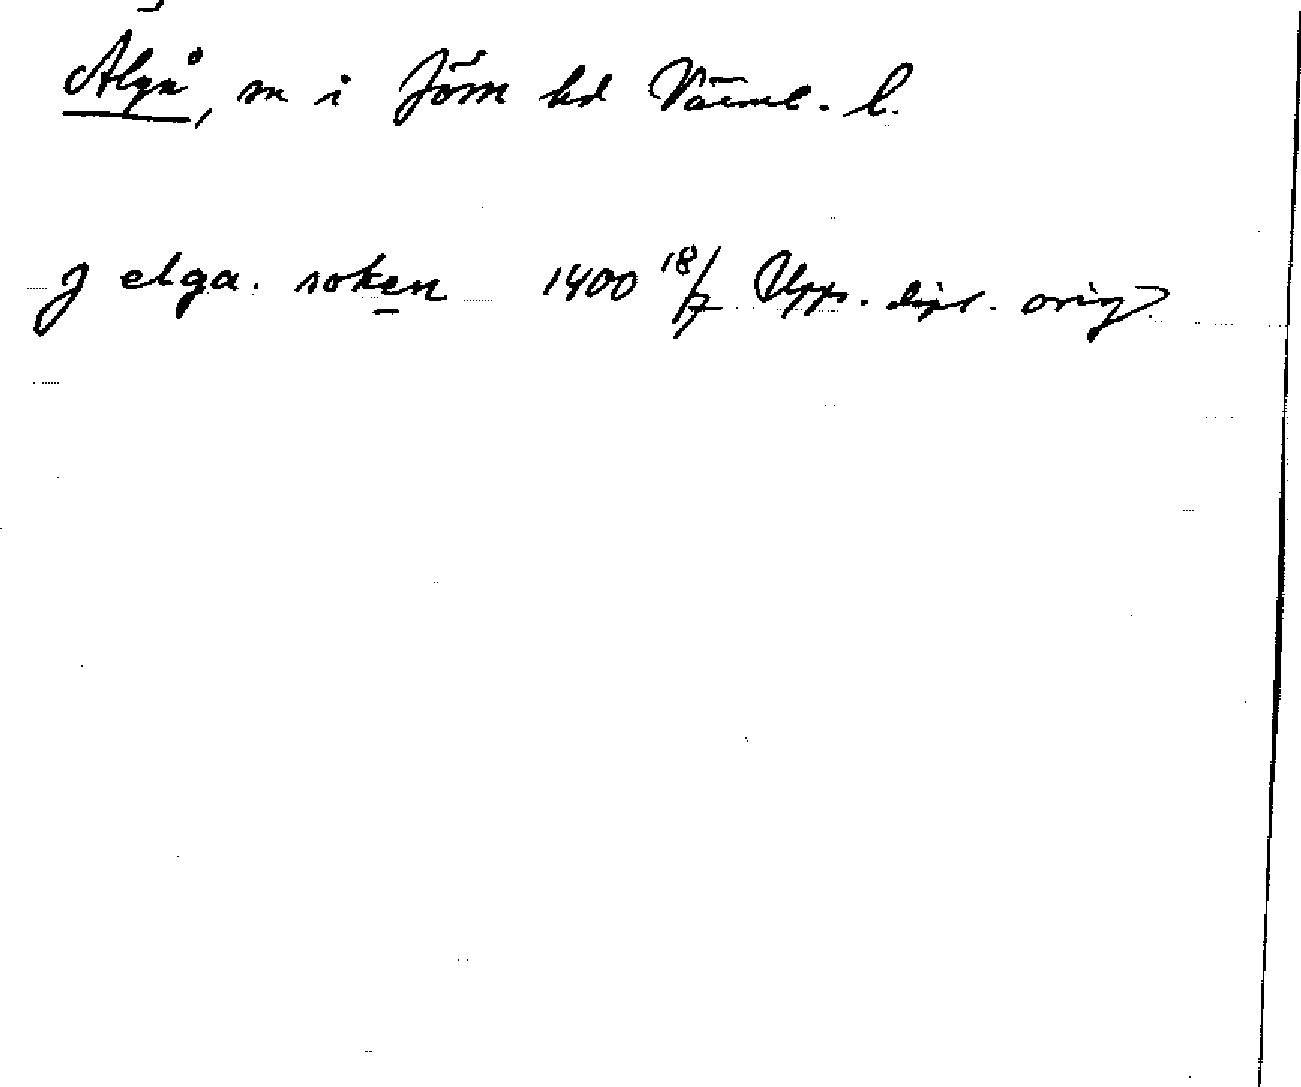 Älgå, sn i Jösse hd Värml. l.
J elga. soken 1400 18/7 Upps. dipl. orig